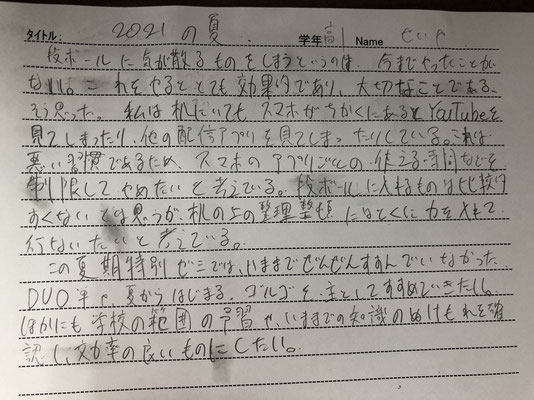 タイトル: 2021の夏 学年 高1 Name せいや
段ボールに気が散るものをしまうというのは、今までやったことが
ない。これをやるととても効果的であり、大切なことである。
そう思った。私は机にいても、スマホがちかくにあるとYouTubeを
見てしまったり、他の配信アプリを見てしまったりしている。これは
悪い習慣であるため、スマホのアプリごとの、使える時間などを
制限してやめたいと考えている。段ボールに入れるものは比較的
すくないとは思うが、机の上の整理整頓にはとくに力を入れて
行ないたいと考えている。
この夏期特別ゼミでは、いままでぜんぜんすすんでいなかった
DUOや、夏からはじまる、ゴルゴを、主としてすすめていきたいし、
ほかにも学校の範囲の予習や、いままでの知識のぬけもれを確
認し、効率の良いものにしたい。